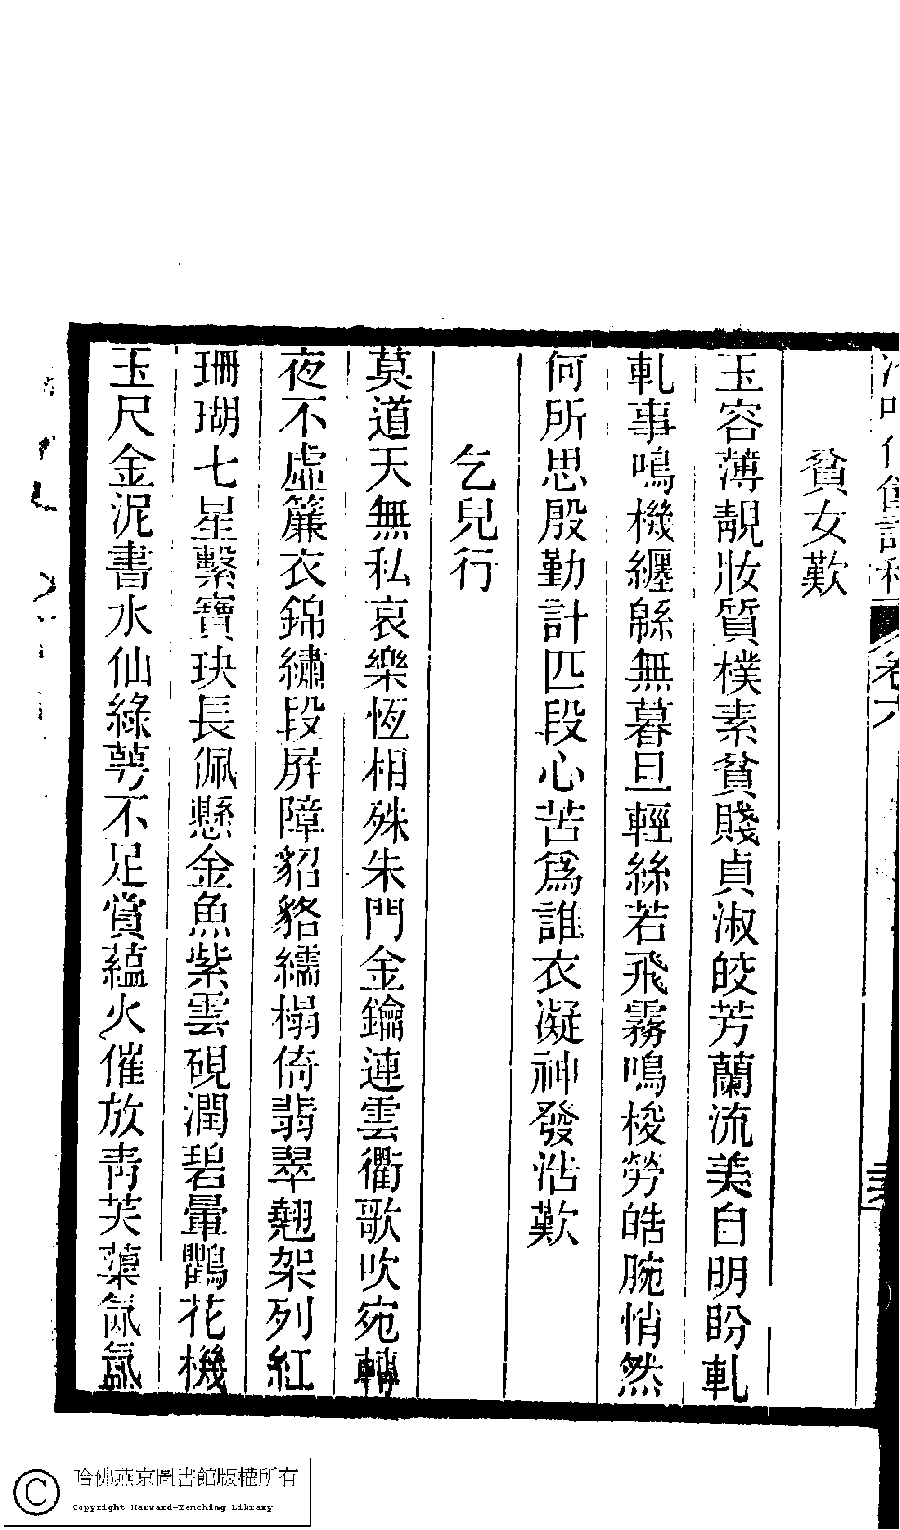 貧女歎
玉容薄靚妝質樸素貧賤貞淑皎芳蘭流美自明盼軋
軋事鳴機纏緜無暮旦輕絲若飛霧鳴梭勞皓腕悄然
何所思殷勤計匹段心苦爲誰衣凝神發浩歎
乞兒行
莫道天無私哀樂恆相殊朱門金鑰連雲衢歌吹宛轉
夜不虛簾衣錦繡段屏障貂貉繻榻倚翡翠翹架列紅
珊瑚七星繫寶玦長佩懸金魚紫雲硯潤碧暈鸜花機
玉尺金泥書水仙綠萼不足賞蘊火催放靑芙蕖氤氳
卷六
哈佛燕京圖書館版權所有
Copyright Harvard-Yenching Library